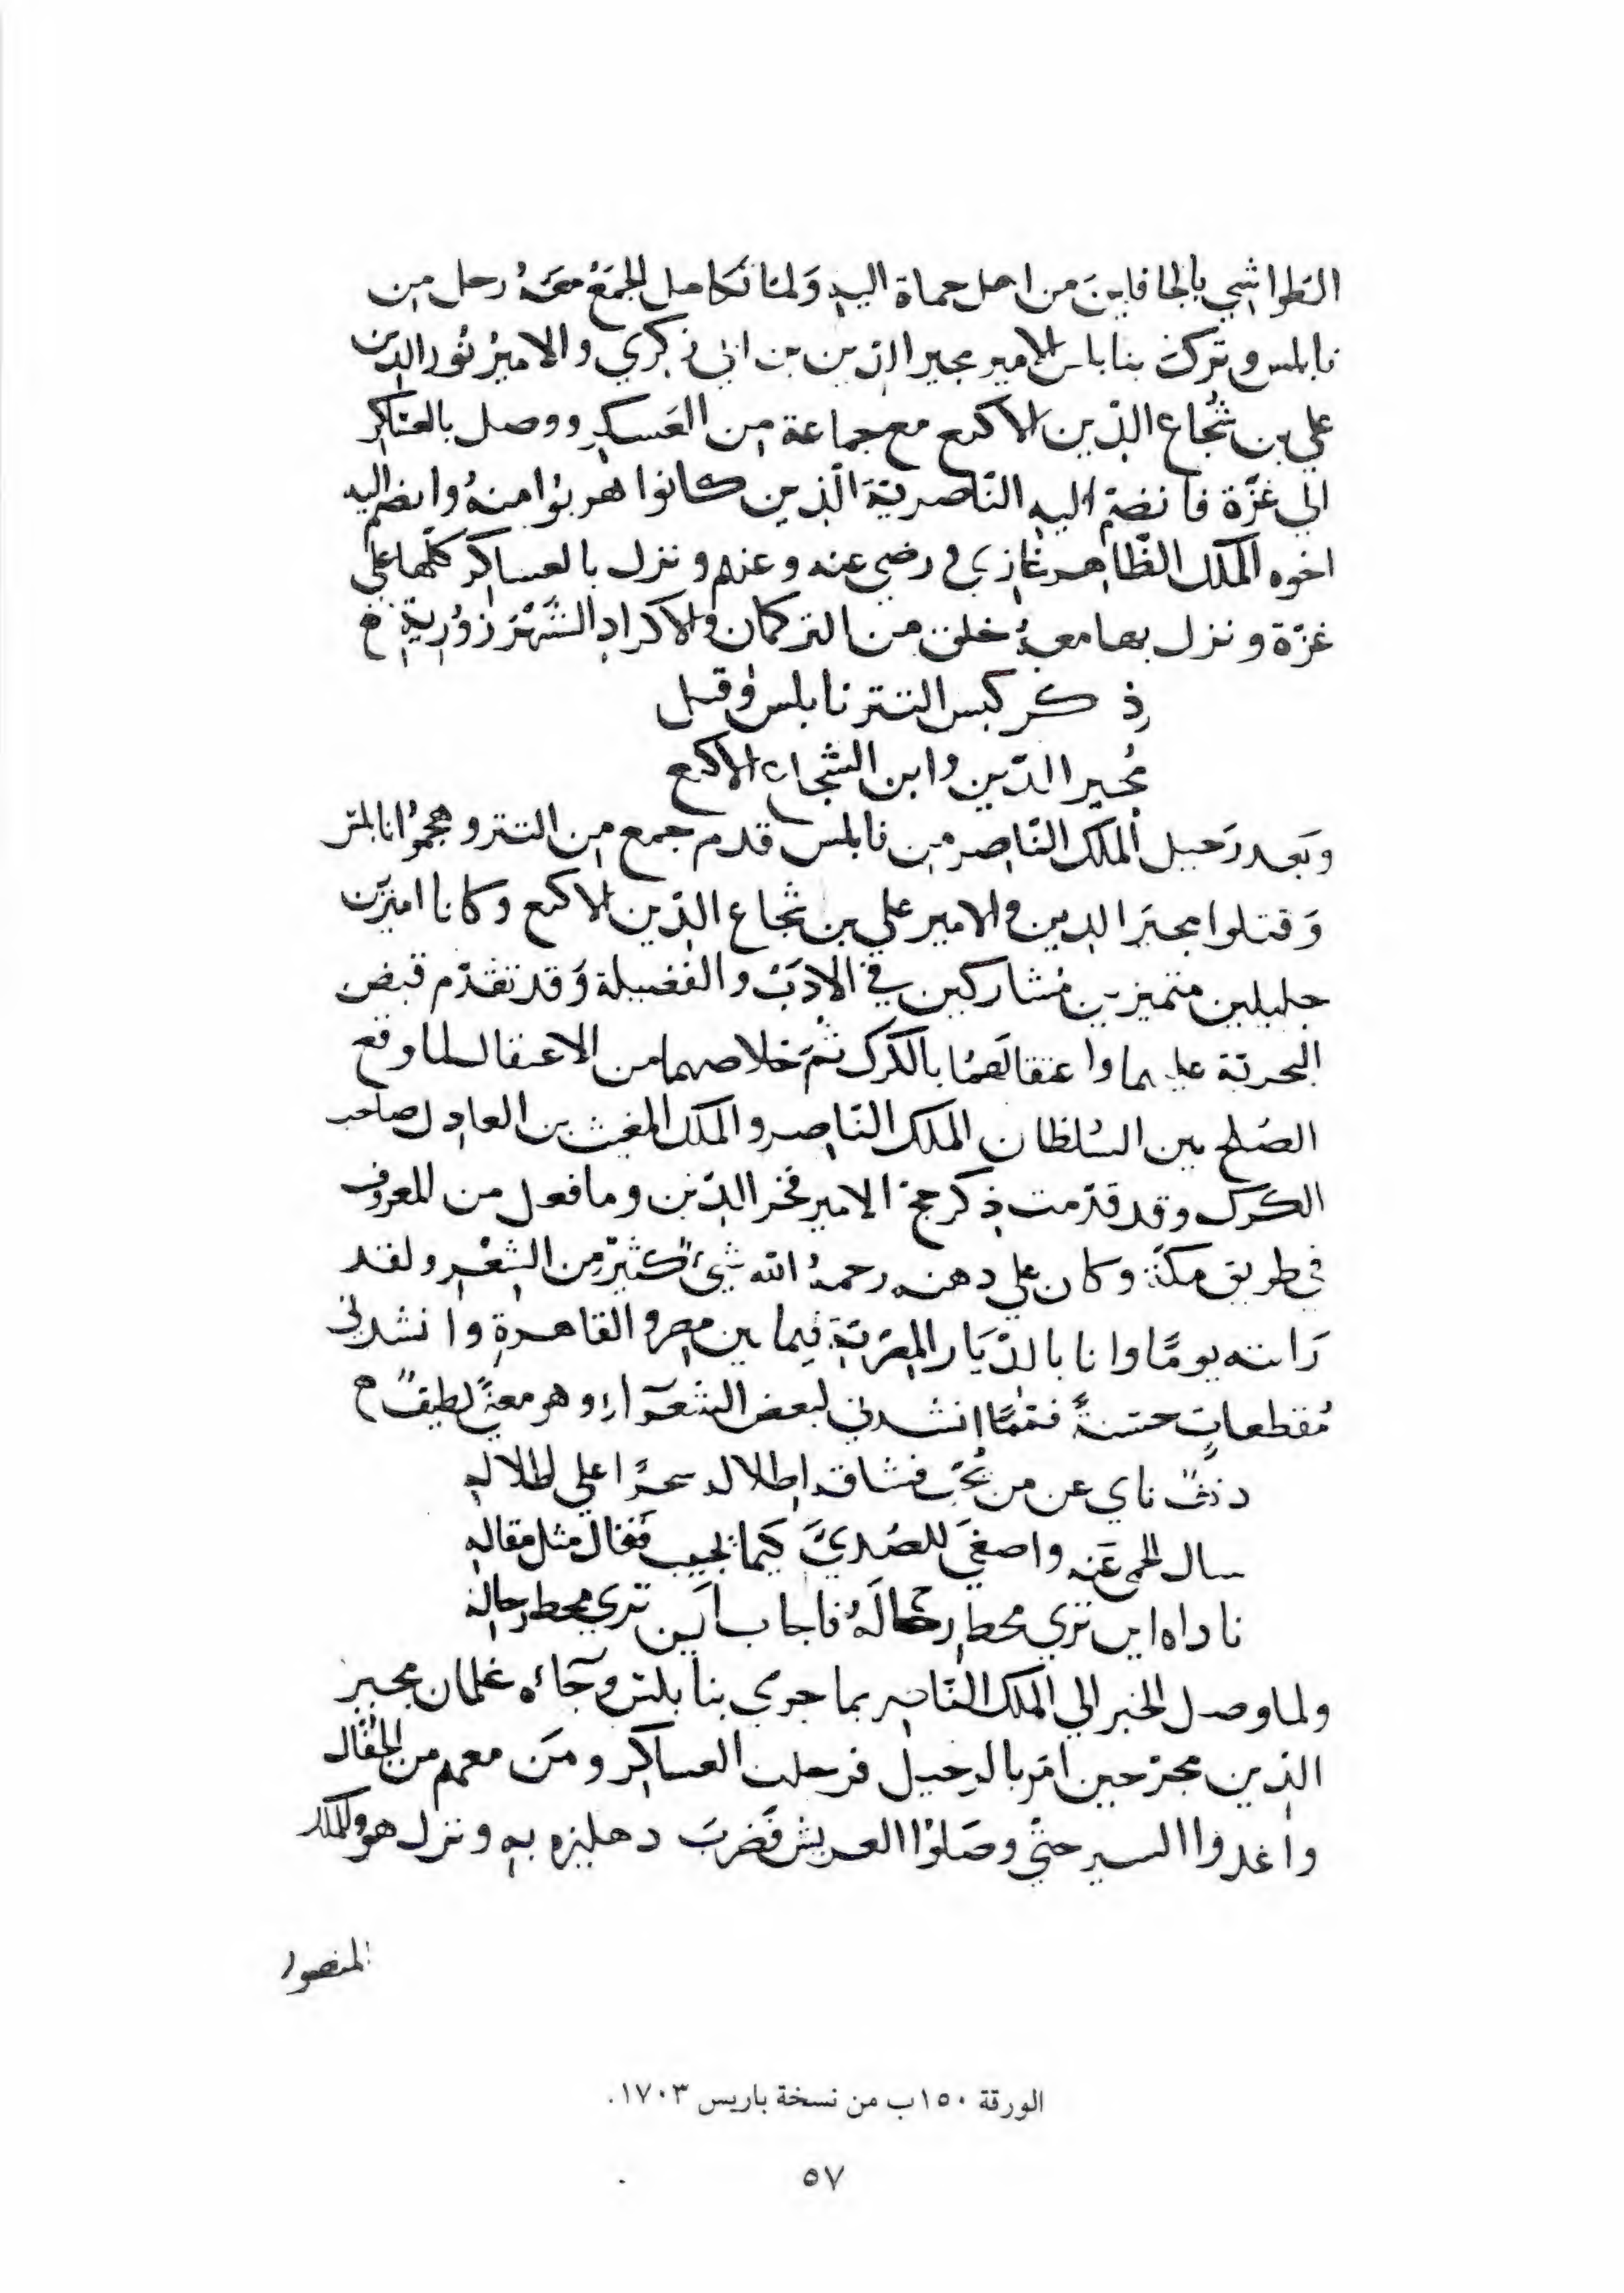 الطواشي بالجافلين من اهل حماة اليه ولما تكامل الجمع معه رحل من
نابلس وترك بنابلس الامير مجير الدين بن ابي زكري والامير نور الدين
علي بن شجاع الدين الاكتع مع جماعة من العسكر ووصل بالعساكر
الي غزة فانضم اليه الناصرية الذين كانوا هربوا منه وانضم اليه
اخوه الملك الظاهر غازي رضي عنه وعنهم ونزل بالعساكر كلها علي
غزة ونزل بها معه خلق من التركمان والاكراد الشهرزورية
ذكر كبس التتر نابلس وقتل
مجير الدين وابن الشجاع الاكتع
وبعد رحيل الملك الناصر من نابلس قدم جمع من التتر وهجموا نابلس
وقتلوا مجير الدين والامير علي بن شجاع الدين الاكتع وكانا اميرين
جليلين متميزين مشاركين في الادب والفضيلة وقد تقدم قبض
البحرية عليهما واعتقالهما بالكرك ثم خلاصهما من الاعتقال لما وقع
الصلح بين السلطان الملك الناصر والملك المغيث بن العادل صاحب
الكرك وقد قدمت ذكر حج الامير فخر الدين وما فعل من المعروف
في طريق مكة وكان علي ذهنه رحمه الله شيء كثير من الشعر ولقد
رايته يوما وانا بالديار المصرية فيما بين مصر والقاهرة وانشدني
مقطعات حسنة فمما انشدني لبعض الشعراء وهو معني لطيف
دنف ناي عن من يحب فشاقه اطلاله سحرا علي اطلاله
سال الحمي عنه واصغي للصدي كيما يجيب فقال مثل مقاله
ناداه اين تري محط رحاله فاجاب اين تري محط رحاله
ولما وصل الخبر الي الملك الناصر بما جري بنابلس وجاءه غلمان مجير
الدين مجرحين امر بالرحيل فرحلت العساكر ومن معهم من الجفال
واغذوا السير حتي وصلوا العريش فضرب دهليزه به ونزل هو والملك
المنصور
الورقة ١٥٠ب من نسخة باريس ١٧٠٣.
٥٧